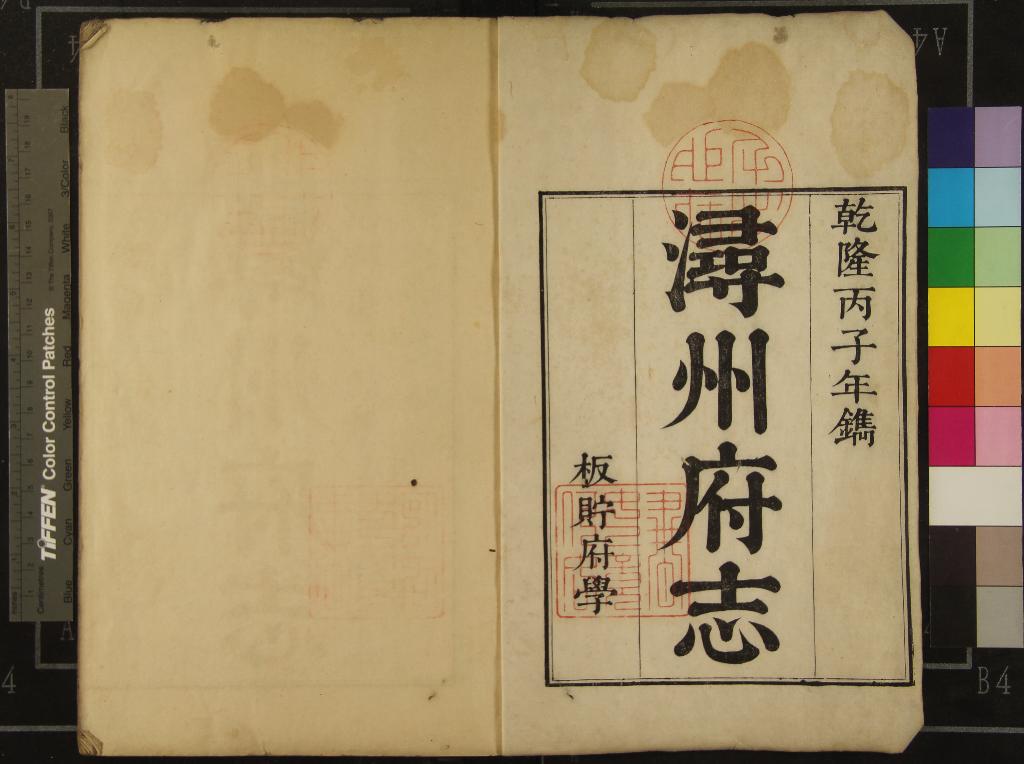 乾隆丙子年鐫
潯州府志
板貯府學
TIFFEN® Color Control Patches
© The Tiffen Company, 2007
Blue
Cyan
Green
Yellow
Red
Magenta
White
3/Color
Black
Inches
Centimetres
A4
B4